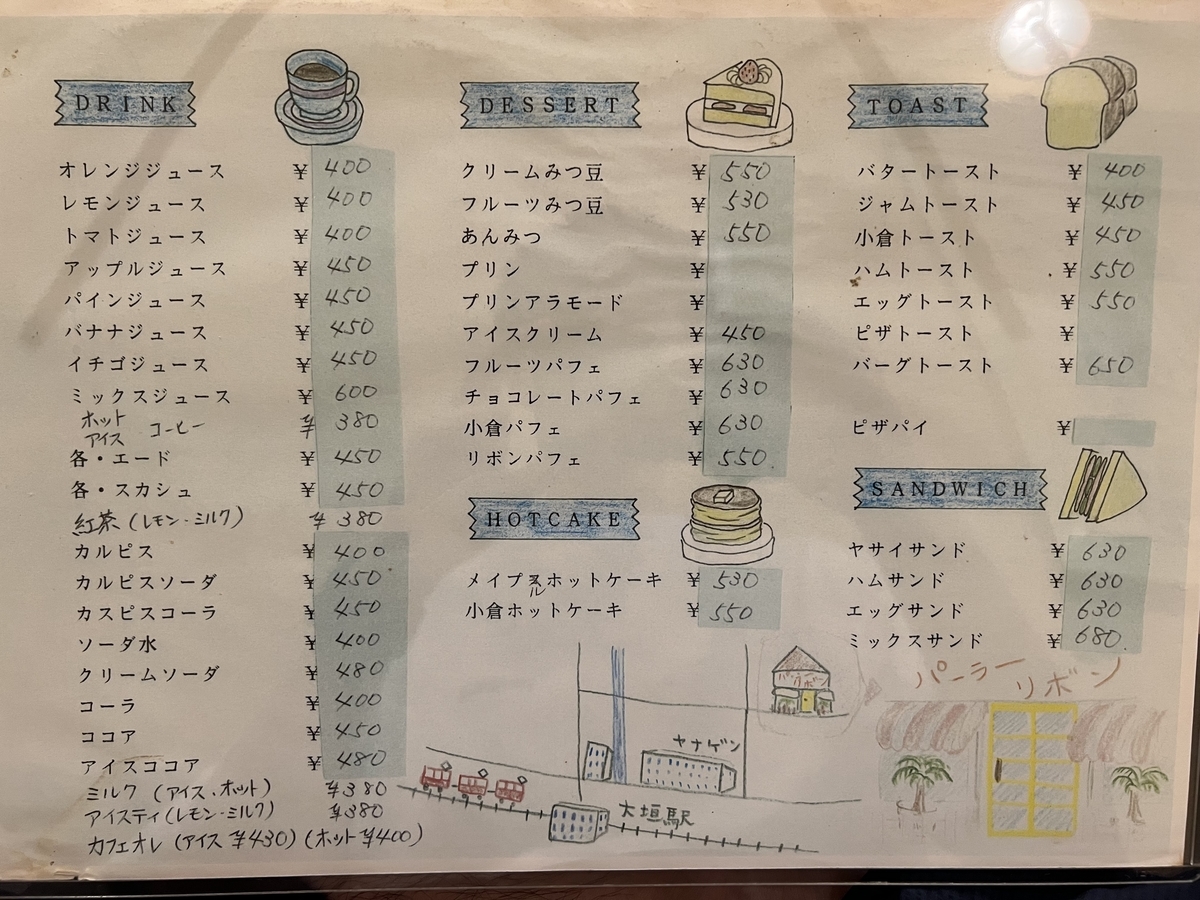 DRINK
オレンジジュース ¥ 400
レモンジュース ¥ 400
トマトジュース ¥ 400
アップルジュース ¥ 450
パインジュース ¥ 450
バナナジュース ¥ 450
イチゴジュース ¥ 450
ミックスジュース ¥ 600
ホット アイス コーヒー ¥ 380
各・エード ¥ 450
各・スカシュ ¥ 450
紅茶 (レモン・ミルク) ¥ 380
カルピス ¥ 400
カルピスソーダ ¥ 450
カスピスコーラ ¥ 450
ソーダ水 ¥ 400
クリームソーダ ¥ 480
コーラ ¥ 400
ココア ¥ 450
アイスココア ¥ 480
ミルク (アイス、ホット) ¥380
アイスティ (レモン・ミルク) ¥380
カフェオレ (アイス ¥430) (ホット ¥400)
DESSERT
クリームみつ豆 ¥ 550
フルーツみつ豆 ¥ 530
あんみつ ¥ 550
プリン ¥
プリンアラモード ¥
アイスクリーム ¥ 450
フルーツパフェ ¥ 630
チョコレートパフェ ¥ 630
小倉パフェ ¥ 630
リボンパフェ ¥ 550
HOTCAKE
メイプルホットケーキ ¥ 530
小倉ホットケーキ ¥ 550
パーラーリボン
ヤナゲン
大垣駅
TOAST
バタートースト ¥ 400
ジャムトースト ¥ 450
小倉トースト ¥ 450
ハムトースト ¥ 550
エッグトースト ¥ 550
ピザトースト ¥
バーグトースト ¥ 650
ピザパイ ¥
SANDWICH
ヤサイサンド ¥ 630
ハムサンド ¥ 630
エッグサンド ¥ 630
ミックスサンド ¥ 680
パーラー リボン